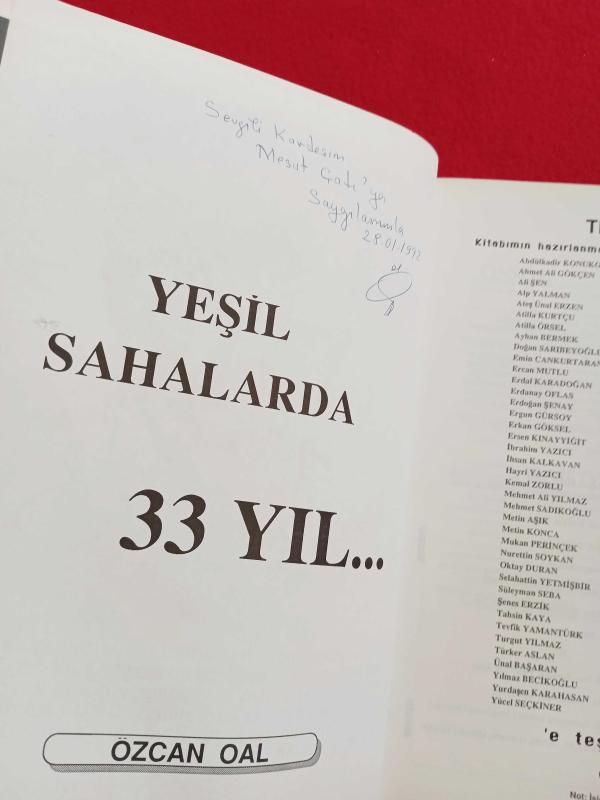 Sevgili Kardeşim
Mesut Çatı'ya
Saygılarımla
28.01.1992
YEŞİL
SAHALARDA
33 YIL...
ÖZCAN OAL
Kitabımın
Abdülkadir
Ahmet Ali GÖKÇEN
Ali ŞEN
Alp YALMAN
Ateş Ünal ERZEN
Atilla KURTÇU
Atilla ÖRSEL
Ayhan BERMEK
Doğan SARIBEYOĞLU
Emin CANKURTARAN
Ercan MUTLU
Erdal KARADOĞAN
Erdanay OFLAS
Erdoğan ŞENAY
Ergun GÜRSOY
Erkan GÖKSEL
Ersen KINAYYİĞİT
İbrahim YAZICI
İhsan KALKAVAN
Hayri YAZICI
Kemal ZORLU
Mehmet Ali YILMAZ
Mehmet SADIKOĞLU
Metin AŞIK
Metin KONCA
Mukan PERİNÇEK
Nurettin SOYKAN
Oktay DURAN
Selahattin YETMİŞBİR
Süleyman SEBA
Şenes ERZİK
Tahsin KAYA
Tevfik YAMANTÜRK
Turgut YILMAZ
Türker ASLAN
Ünal BAŞARAN
Yılmaz BECİKOĞLU
Yurdaşen KARAHASAN
Yücel SEÇKİNER
'e
Not: